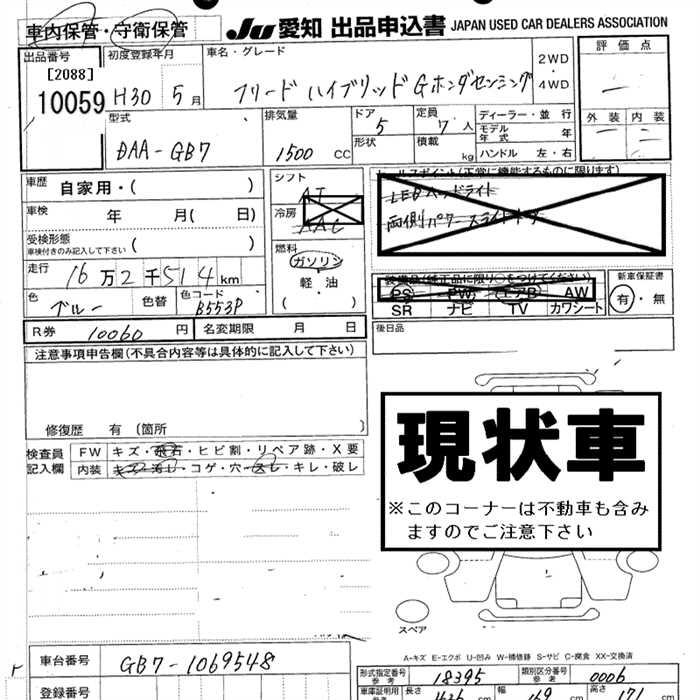 車内保管・守衛保管 JU 愛知 出品申込書 JAPAN USED CAR DEALERS ASSOCIATION
出品番号 [2088] 10059
初度登録年月 H30 5月
車名・グレード フリード ハイブリッド Gホンダセンシング
2WD・4WD
評価点
外装 内装
型式 DAA-GB7
排気量 1500 CC
ドア 5
形状
定員 7人
積載 kg
ディーラー・並行
モデル年式 年
ハンドル 左・右
車歴 自家用・( )
車検 年 月( 日)
受検形態
車検付きのみ記入して下さい ( )
走行 16万2千514km
色 ブルー 色替 色コード B553P
シフト AT
冷房 AAC
燃料 ガソリン・軽油 ( )
セールスポイント(正常に機能するものに限ります)
LEDヘッドライト
両側パワースライドドア
装備品(純正品に限り○をつけてください)
PS PW エアB AW
SR ナビ TV カワシート
新車保証書 有・無
R券 10060 円 名変期限 月 日
後日品
注意事項申告欄(不具合内容等は具体的に記入して下さい)
修復歴 有 (箇所 )
検査員記入欄
FW キズ・飛石・ヒビ割・リペア跡・X要
内装 キズ・汚レ・コゲ・穴・スレ・キレ・破レ
現状車
※このコーナーは不動車も含み
ますのでご注意下さい
スペア
A-キズ E-エクボ U-凹み W-補修跡 S-サビ C-腐食 XX-交換済
車台番号 GB7-1069548
登録番号
形式指定番号 参考 18395 類別区分番号 参考 0006
車庫証明用 参考 長さ 幅 169 高さ 171